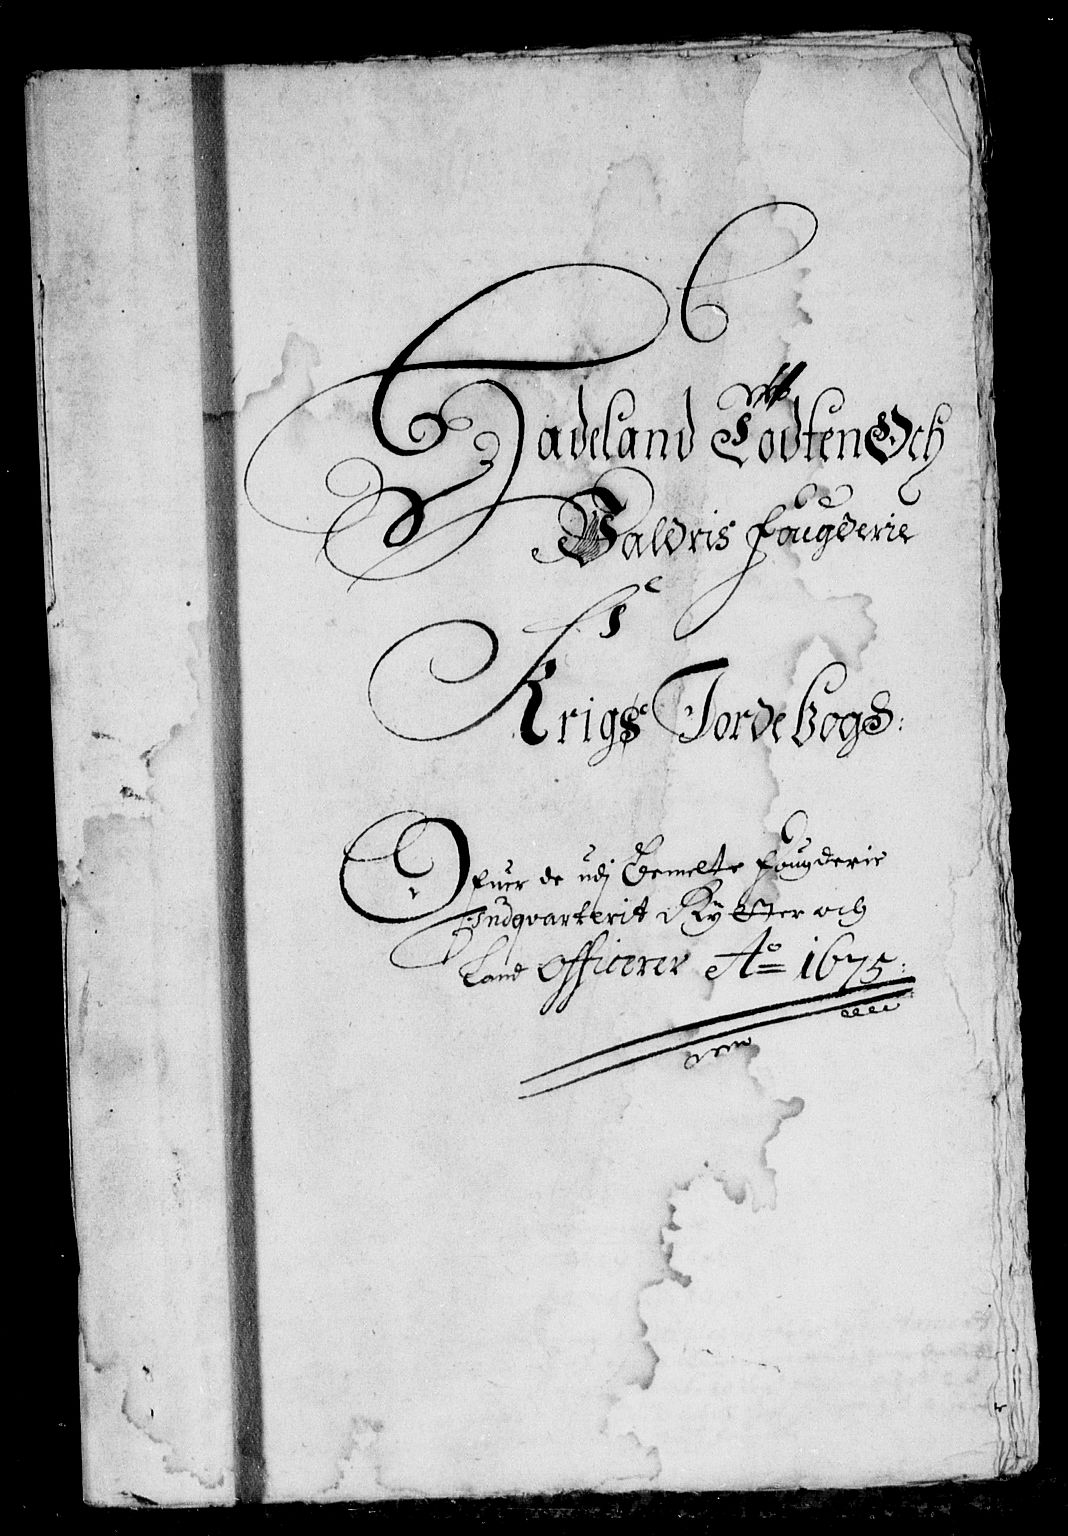 Hadeland Todten Och
Valdris fougderie
Krigs Jordebogs:
Ofuer de udj bemelte fougderie
Indqvarterit Rytter och
Land Officerer Ao 1675: